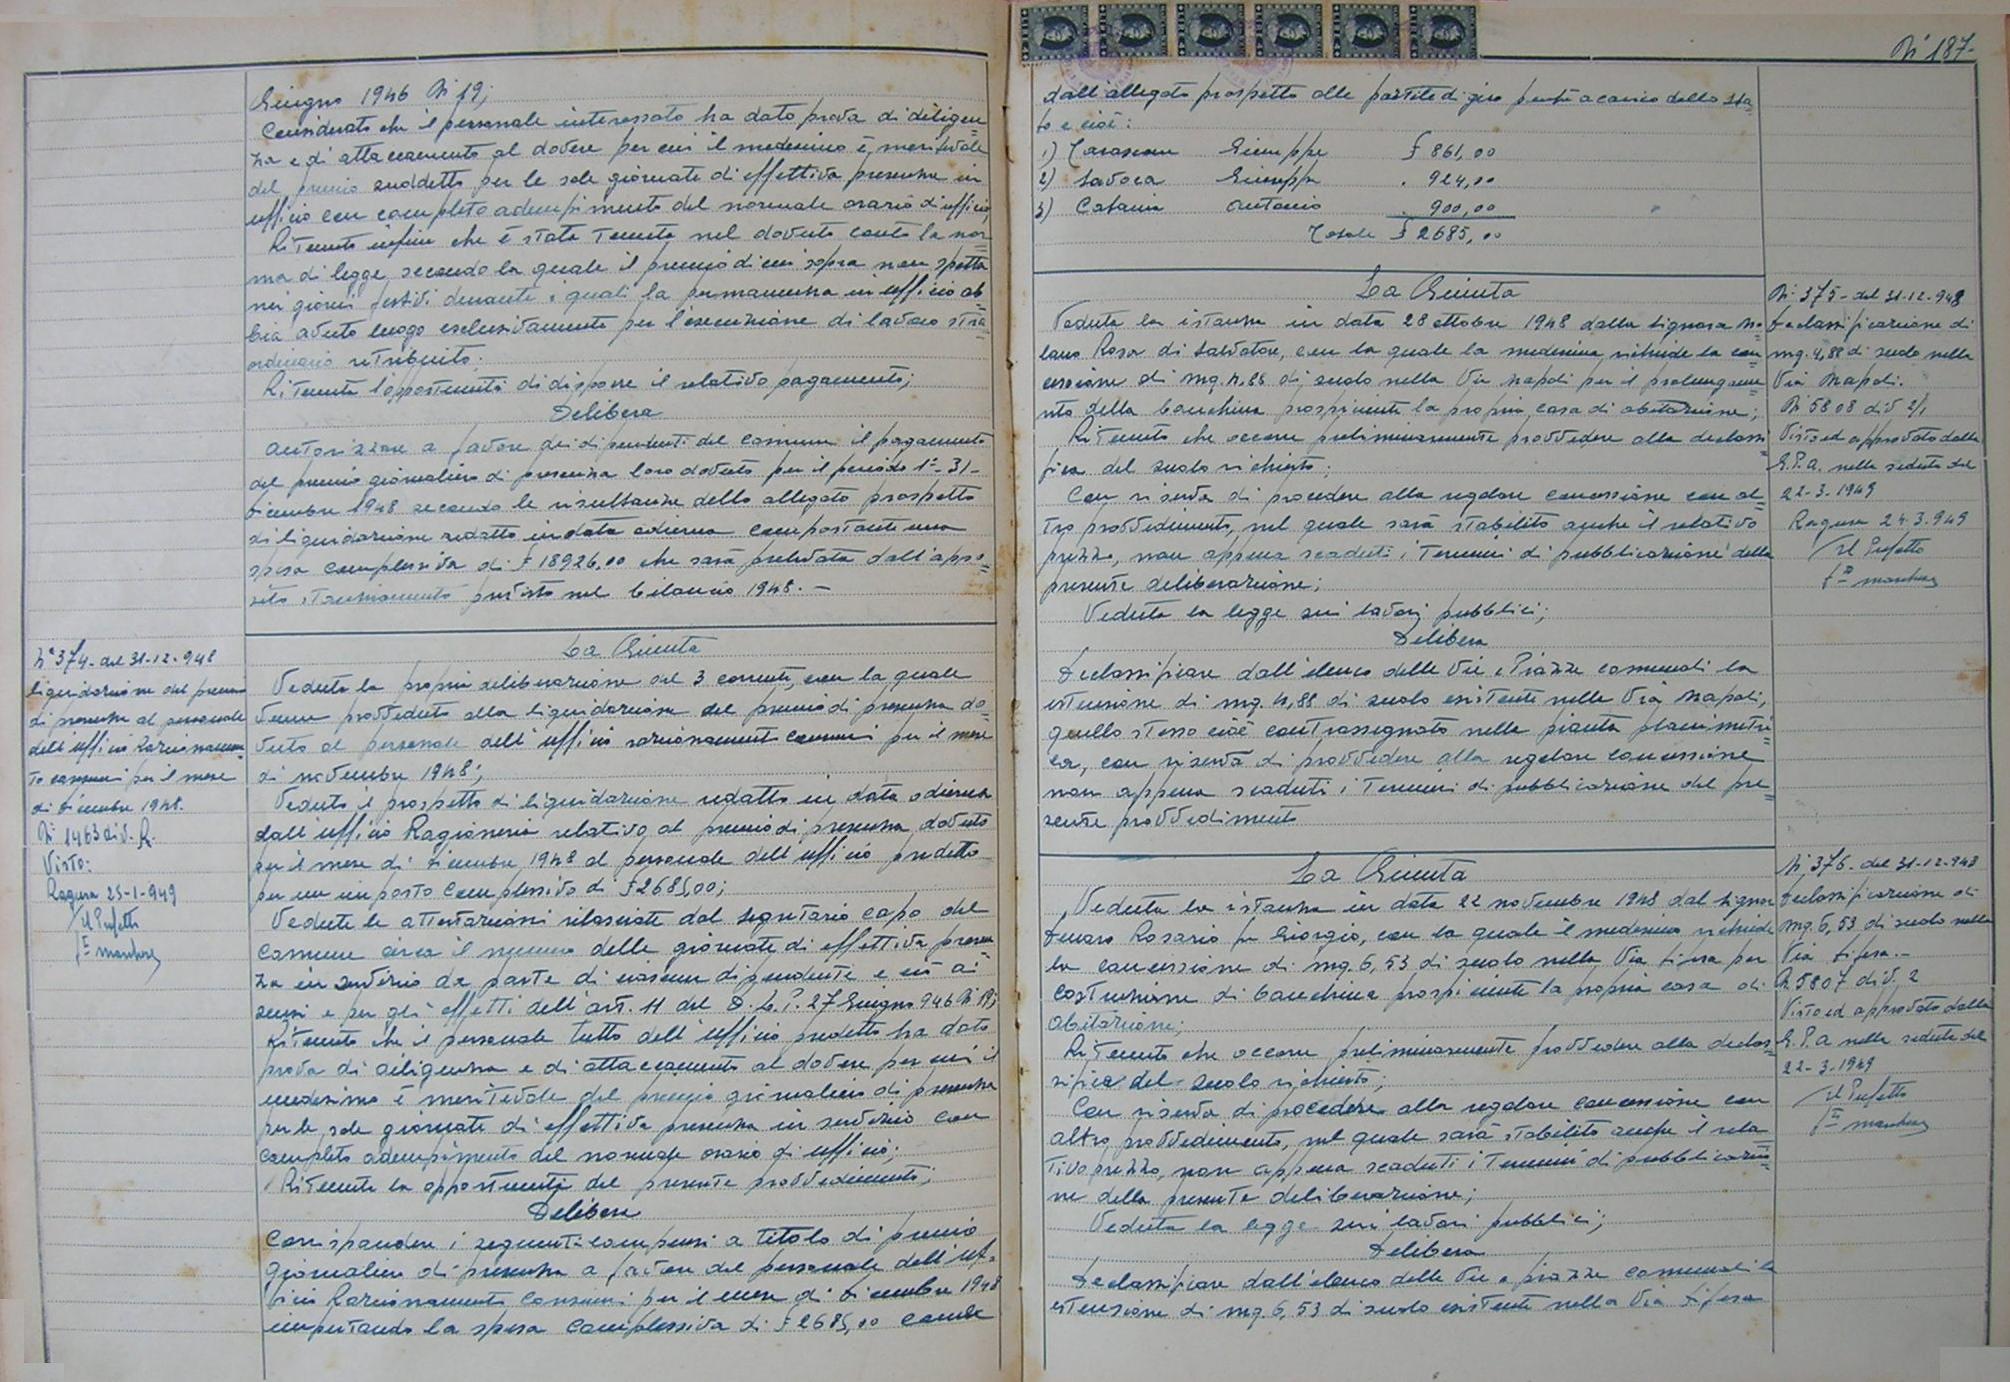 Giugno 1946 N° 19;
Considerato che il personale interessato ha dato prova di diligen=
za e di attaccamento al dovere per cui il medesimo è meritevole
del premio suddetto per le sole giornate di effettiva presenza in
ufficio con completo adempimento del normale orario d'ufficio,
Ritenuto infine che è stata tenuta nel dovuto conto la nor=
ma di legge secondo la quale il premio di cui sopra non spetta
nei giorni festivi durante i quali la permanenza in ufficio ab=
bia avuto luogo esclusivamente per l'esecuzione di lavoro stra=
ordinario retribuito.
Ritenuta l'opportunità di disporre il relativo pagamento;
Delibera
Autorizzare a favore dei dipendenti del comune il pagamento
del premio giornaliero di presenza loro dovuto per il periodo 1°-31-
Dicembre 1948 secondo le risultanze dello allegato prospetto
di liquidazione redatto in data odierna comportante una
spesa complessiva di £ 18926,00 che sarà prelevata dall'appo=
sito stanziamento previsto nel bilancio 1948. -
N° 374- del 31-12-948
liquidazione del premio
di presenza al personale
dell'ufficio Razionamen=
to consumi per il mese
di Dicembre 1948.
N° 1463 div. R.
Visto:
Ragusa 25-1-949
Il Prefetto
La Giunta
Veduta la propria deliberazione del 3 corrente, con la quale
venne provveduto alla liquidazione del premio di presenza do=
vuto al personale dell'ufficio razionamento consumi per il mese
di novembre 1948;
Veduto il prospetto di liquidazione redatto in data odierna
dall'ufficio Ragioneria relativo al premio di presenza dovuto
per il mese di Dicembre 1948 al personale dell'ufficio predetto
per un importo complessivo di £ 2685,00;
Vedute le attestazioni rilasciate dal segretario capo del
Comune circa il numero delle giornate di effettiva presen=
za in servizio da parte di ciascun dipendente e ciò ai
sensi e per gli effetti dell'art. 11 del D.L.P. 27 Giugno 946 N° 19;
Ritenuto che il personale tutto dell'ufficio predetto ha dato
prova di diligenza e di attaccamento al dovere per cui il
medesimo è meritevole del premio giornaliero di presenza
per le sole giornate di effettiva presenza in servizio con
completo adempimento del normale orario di ufficio;
Ritenuta la opportunità del presente provvedimento;
Delibera
Corrispondere i seguenti compensi a titolo di premio
giornaliero di presenza a favore del personale dell'uf=
ficio Razionamento Consumi per il mese di Dicembre 1948
importando la spesa complessiva di £ 2685,00 come
N° 187-
dall'allegato prospetto alle partite di giro perché a carico dello sta
to e cioè:
1) Giuseppe £ 861,00
2) Savoca Giuseppe . 924,00
3) Catania Antonio . 900,00
Totale £ 2685,00
La Giunta
Veduta la istanza in data 28 ottobre 1948 della Signora
Rosa di Salvatore, con la quale la medesima richiede la con
cessione di mq. 4,88 di suolo nella Via Napoli per il prolungame
nto della banchina prospiciente la propria casa di abitazione;
Ritenuto che occorre preliminarmente provvedere alla declassi
fica del suolo richiesto;
Con riserva di procedere alla regolare concessione con al=
tro provvedimento, nel quale sarà stabilito anche il relativo
prezzo, non appena scaduti i termini di pubblicazione della
presente deliberazione;
Veduta la legge sui lavori pubblici;
Delibera
Declassificare dall'elenco delle Vie e Piazze comunali la
estensione di mq. 4,88 di suolo esistente nella Via Napoli,
quello stesso cioè contrassegnato nella pianta planimetri=
ca, con riserva di provvedere alla regolare concessione
non appena scaduti i termini di pubblicazione del pre=
sente provvedimento
N° 375- del 31-12-948
Declassificazione di
mq. 4,88 di suolo nella
Via Napoli.
N° 5808 div 2/1
Visto ed approvato dalla
G.P.A. nella seduta del
22-3-1949
Ragusa 24-3-949
Il Prefetto
La Giunta
Veduta la istanza in data 22 novembre 1948 del Signor
Rosario fu Giorgio, con la quale il medesimo richiede
la concessione di mq. 6,53 di suolo nella Via Difesa per
costruzione di banchina prospiciente la propria casa di
abitazione;
Ritenuto che occorre preliminarmente provvedere alla declas=
sifica del suolo richiesto;
Con riserva di procedere alla regolare concessione con
altro provvedimento, nel quale sarà stabilito anche il rela
tivo prezzo, non appena scaduti i termini di pubblicazio=
ne della presente deliberazione;
Veduta la legge sui lavori pubblici;
Delibera
Declassificare dall'elenco delle Vie e piazze comunali la
estensione di mq. 6,53 di suolo esistente nella Via Difesa
N° 376- del 31-12-948
Declassificazione di
mq. 6,53 di suolo nella
Via Difesa.-
N. 5807 div. 2
Visto ed approvato dalla
G.P.A nella seduta del
22-3-1949
Il Prefetto